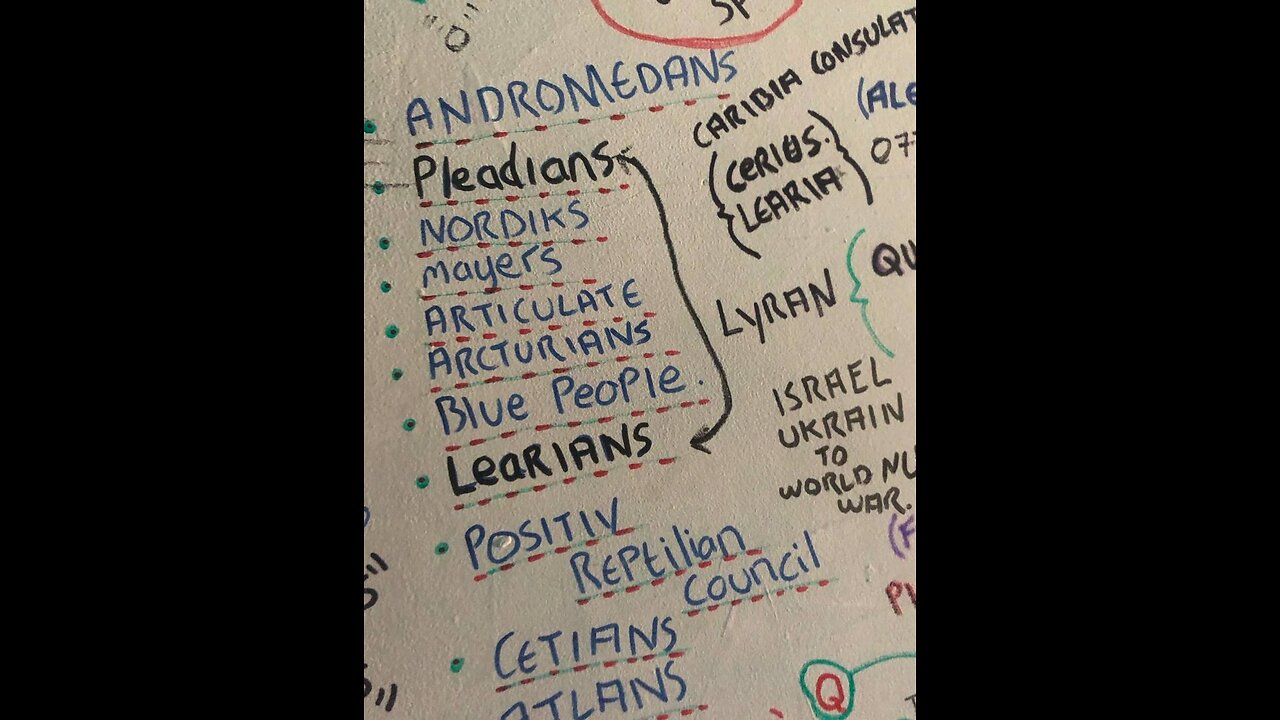 SP
ANDROMEDANS
Pleadians
NORDIKS
mayers
ARTICULATE
ARCTURIANS
Blue People.
LeaRIANS
POSITIV
REPtilian
Council
CETIANS
ATLANS
CARIBIA CONSULAT
(CERIUS.
LEARIA)
(ALE
07
LYRAN
QU
ISRAEL
UKRAIN
TO
WORLD NU
WAR.
(F
Q